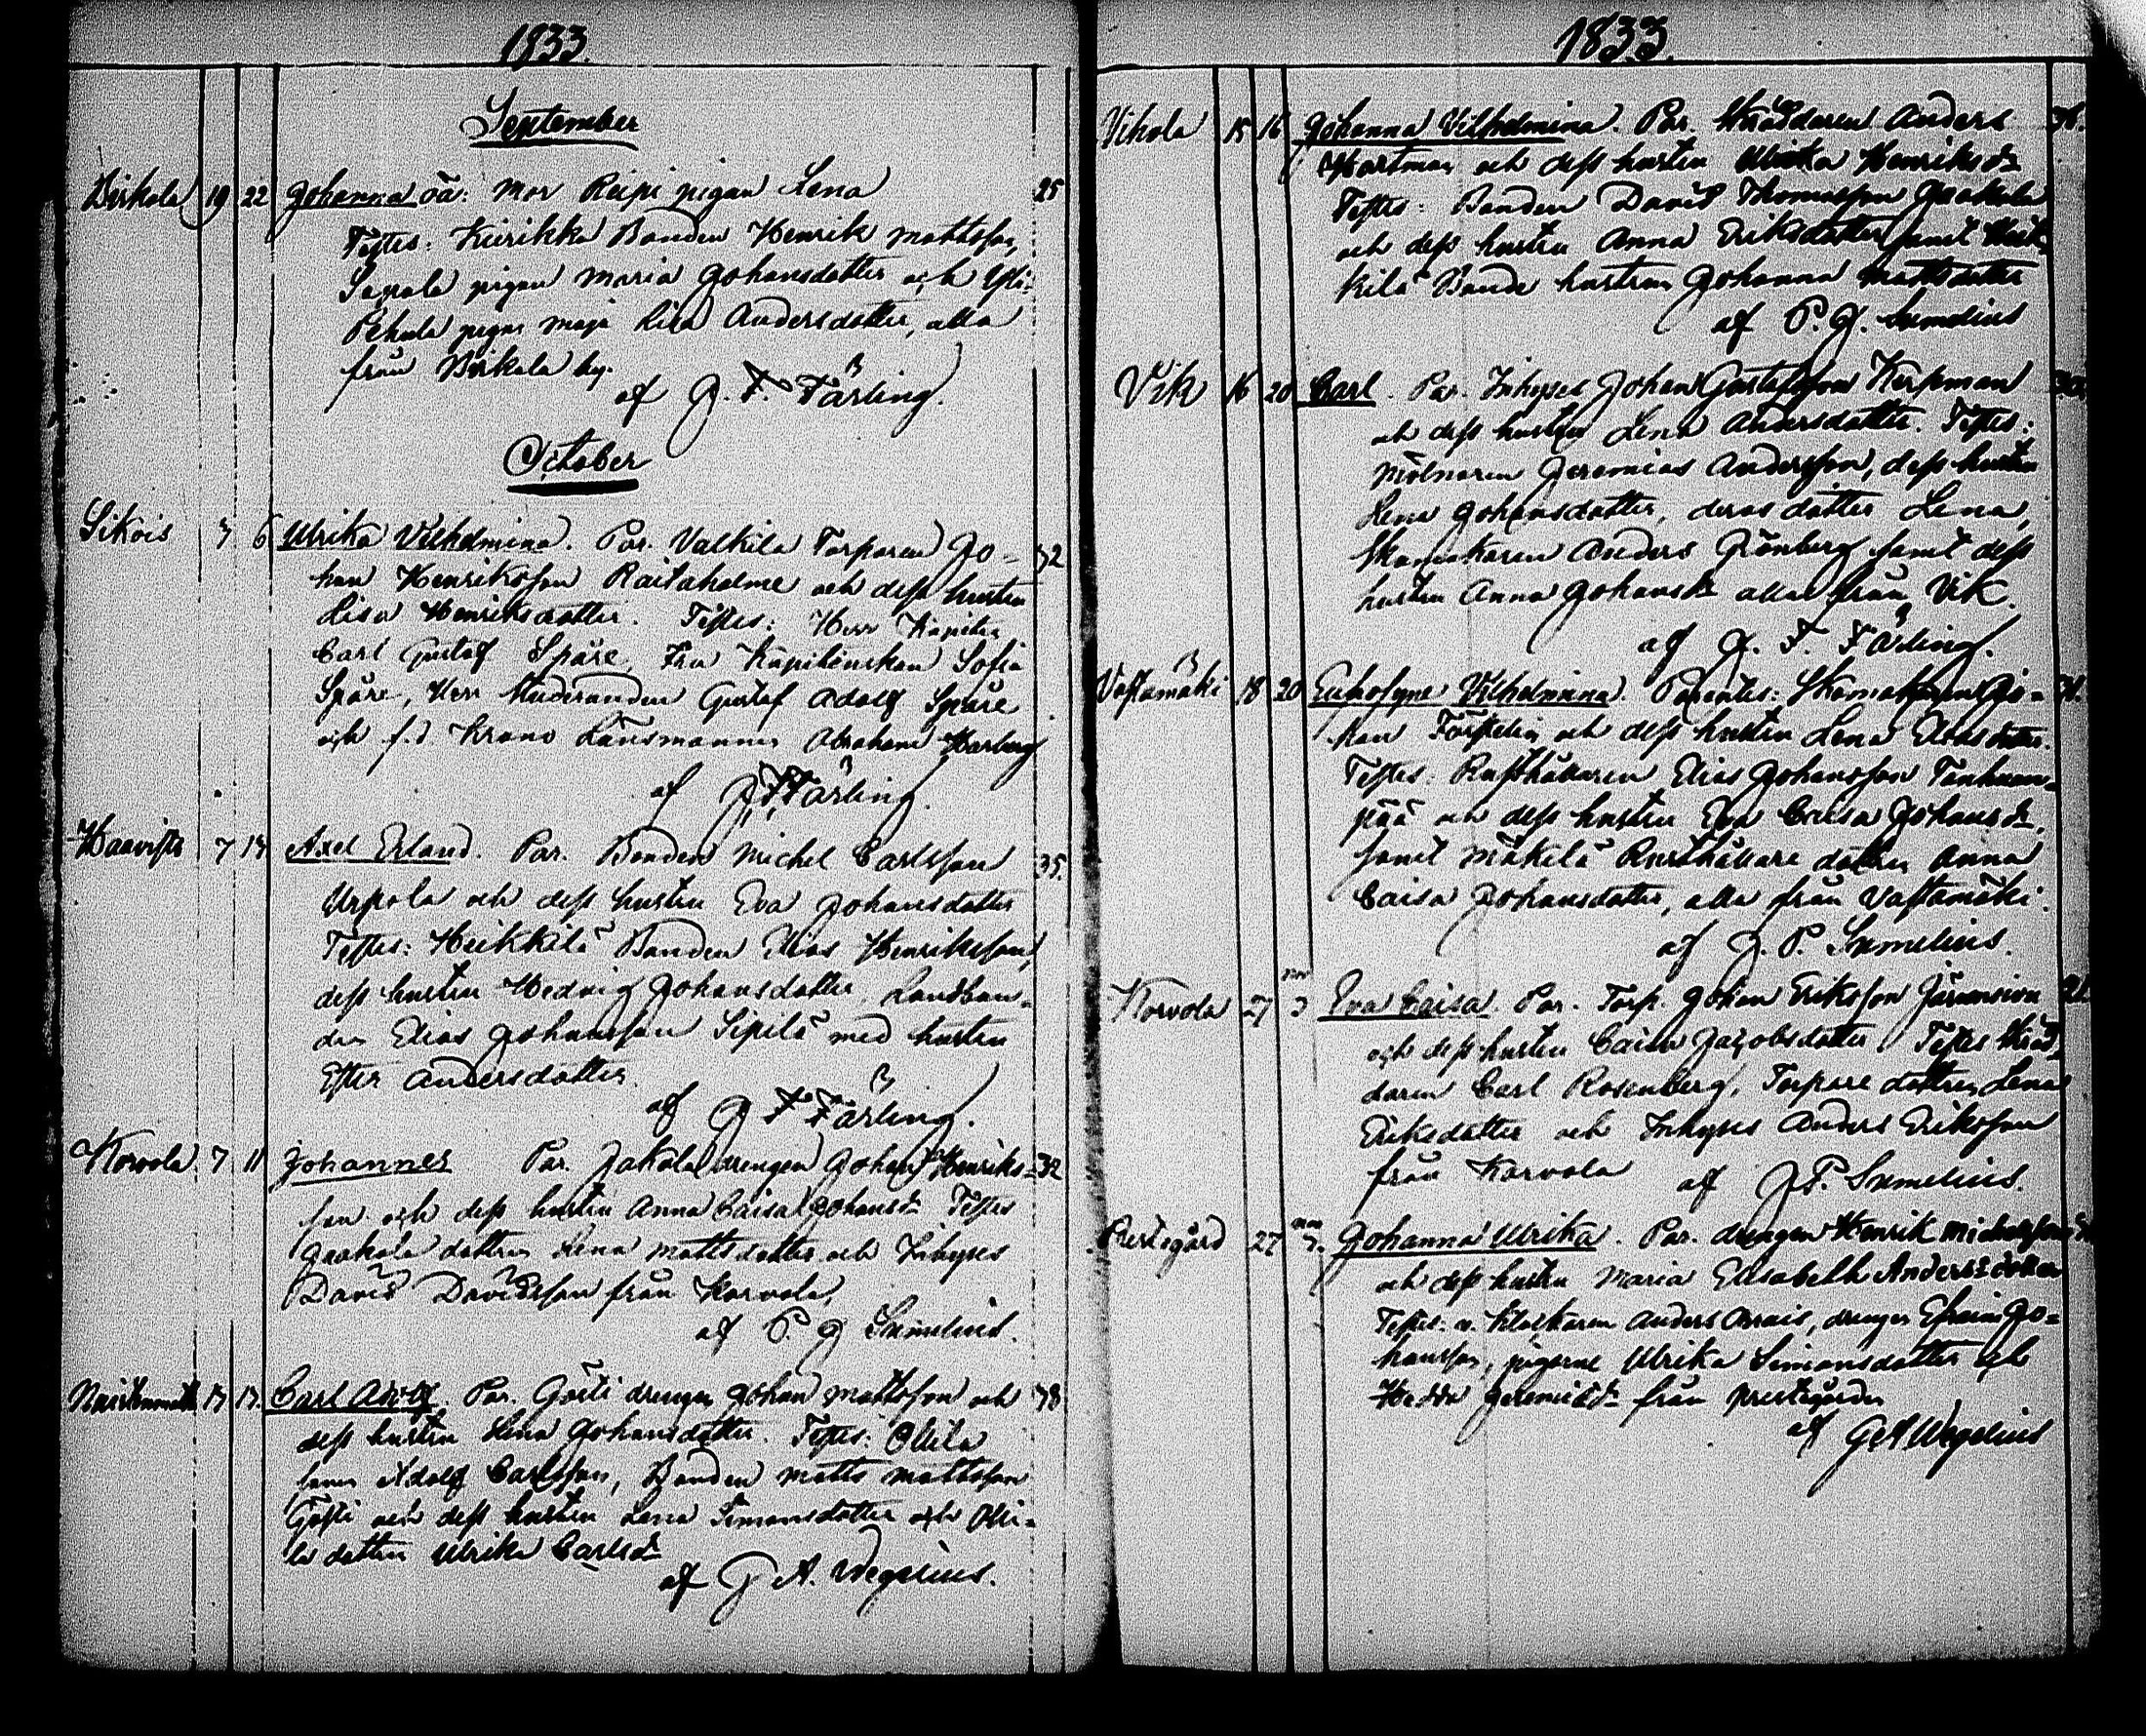 1833.
September
Birkala 19 22 Johanna oä: mor Reipi pigan Lena 25
Testes: Kierikka Bonden Henrik Mattsson,
Sepola pigan Maria Johansdotter och Yli-
Pehula pigan Maja Lisa Andersdotter, alla
från Birkala by.
af J. F. Färling.
October
Sikois 3 6 Ulrika Vilhelmina. Par. Valkila Torparen Jo- 32
han Henriksson Raitaholme och dess hustru
Lisa Henriksdotter. Testes: Herr Kapiten
Carl Gustaf Spåre, Fru Kapitenskan Sofia
Spåre, Herr Studeranden Gustaf Adolf Spåre
och f.d. Krono Länsmannen Abraham Harberg
af J. F. Färling.
Haavisto 7 13 Axel Erland. Par. Bonden Michel Carlsson 35.
Urpola och dess hustru Eva Johansdotter
Testes: Heikkilä Bonden Elias Henriksson,
dess hustru Hedvig Johansdotter, Landbon-
den Elias Johansson Sipilä med hustru
Ester Andersdotter.
af J F Färling.
Korvola 7 11 Johannes Par. Jakola drengen Johan Henriks- 32
son och dess hustru Anna Caisa Johansdr Testes
Jaakola dottren Lena Mattsdotter och Inhyses
David Davidsson från Korvola,
af P. J Sumelius.
13 13. Carl Adolf. Par. Gösti drengen Johan Mattsson och 38
dess hustru Lena Johansdotter. Testes: Ollila
sonen Adolf Carlsson, Bonden Matts Mattsson
Gösti och dess hustru Lena Simonsdotter och Olli-
la dottren Ulrika Carlsdr
af G A. Wegelius.
1833.
Vihola 15 16 Johanna Vilhelmina. Par. Skräddaren Anders 36.
Hartman och dess hustru Ulrika Henriksdr
Testes: Bonden David Thomasson Jaakola
och dess hustru Anna Eriksdotter samt Heik-
kilä Bonde hustrun Johanna Mattsdotter
af P. J. Sumelius
Vik 16 20 Carl. Par. Inhyses Johan Gustafsson Kerpman 30.
och dess hustru Lena Andersdotter. Testes:
Mölnaren Jeremias Andersson, dess hustru
Lena Johansdotter, deras dotter Lena,
Skomakaren Anders Grönberg samt dess
hustru Anna Johansdr alla från Vik.
af J. F. Färling.
Vastamäki 18 20 Euphrosyne Vilhelmina. Parentes: Skomakaren Jo- 31.
han Forselin och dess hustru Lena
Testes: Rusthållaren Elias Johansson Tanhuan-
pää och dess hustru Eva Caisa Johansdr,
samt Mäkilä Rusthållare dottren Anna
Caisa Johansdotter, alla från Vastamäki.
af J. P. Sumelius.
Korvola 27 nov 3 Eva Caisa. Par. Torp. Johan Eriksson 21.
och dess hustru Caisa Jacobsdotter Testes Skräd-
daren Carl Rosenberg, Torpare dottren Lena
Eriksdotter och Inhyses Anders Eriksson
från Korvola af J P. Sumelius.
Prestegård 27 nov 3. Johanna Ulrika. Par. drengen Henrik Michelsson
och dess hustru Maria Elisabeth Andersdotter
Testes: v. Klockaren Anders Orrais, drengen Efraim Jo-
hansson, pigorne Ulrika Simonsdotter och
Hedda Jeremiædr från Prestegården
af G A Wegelius